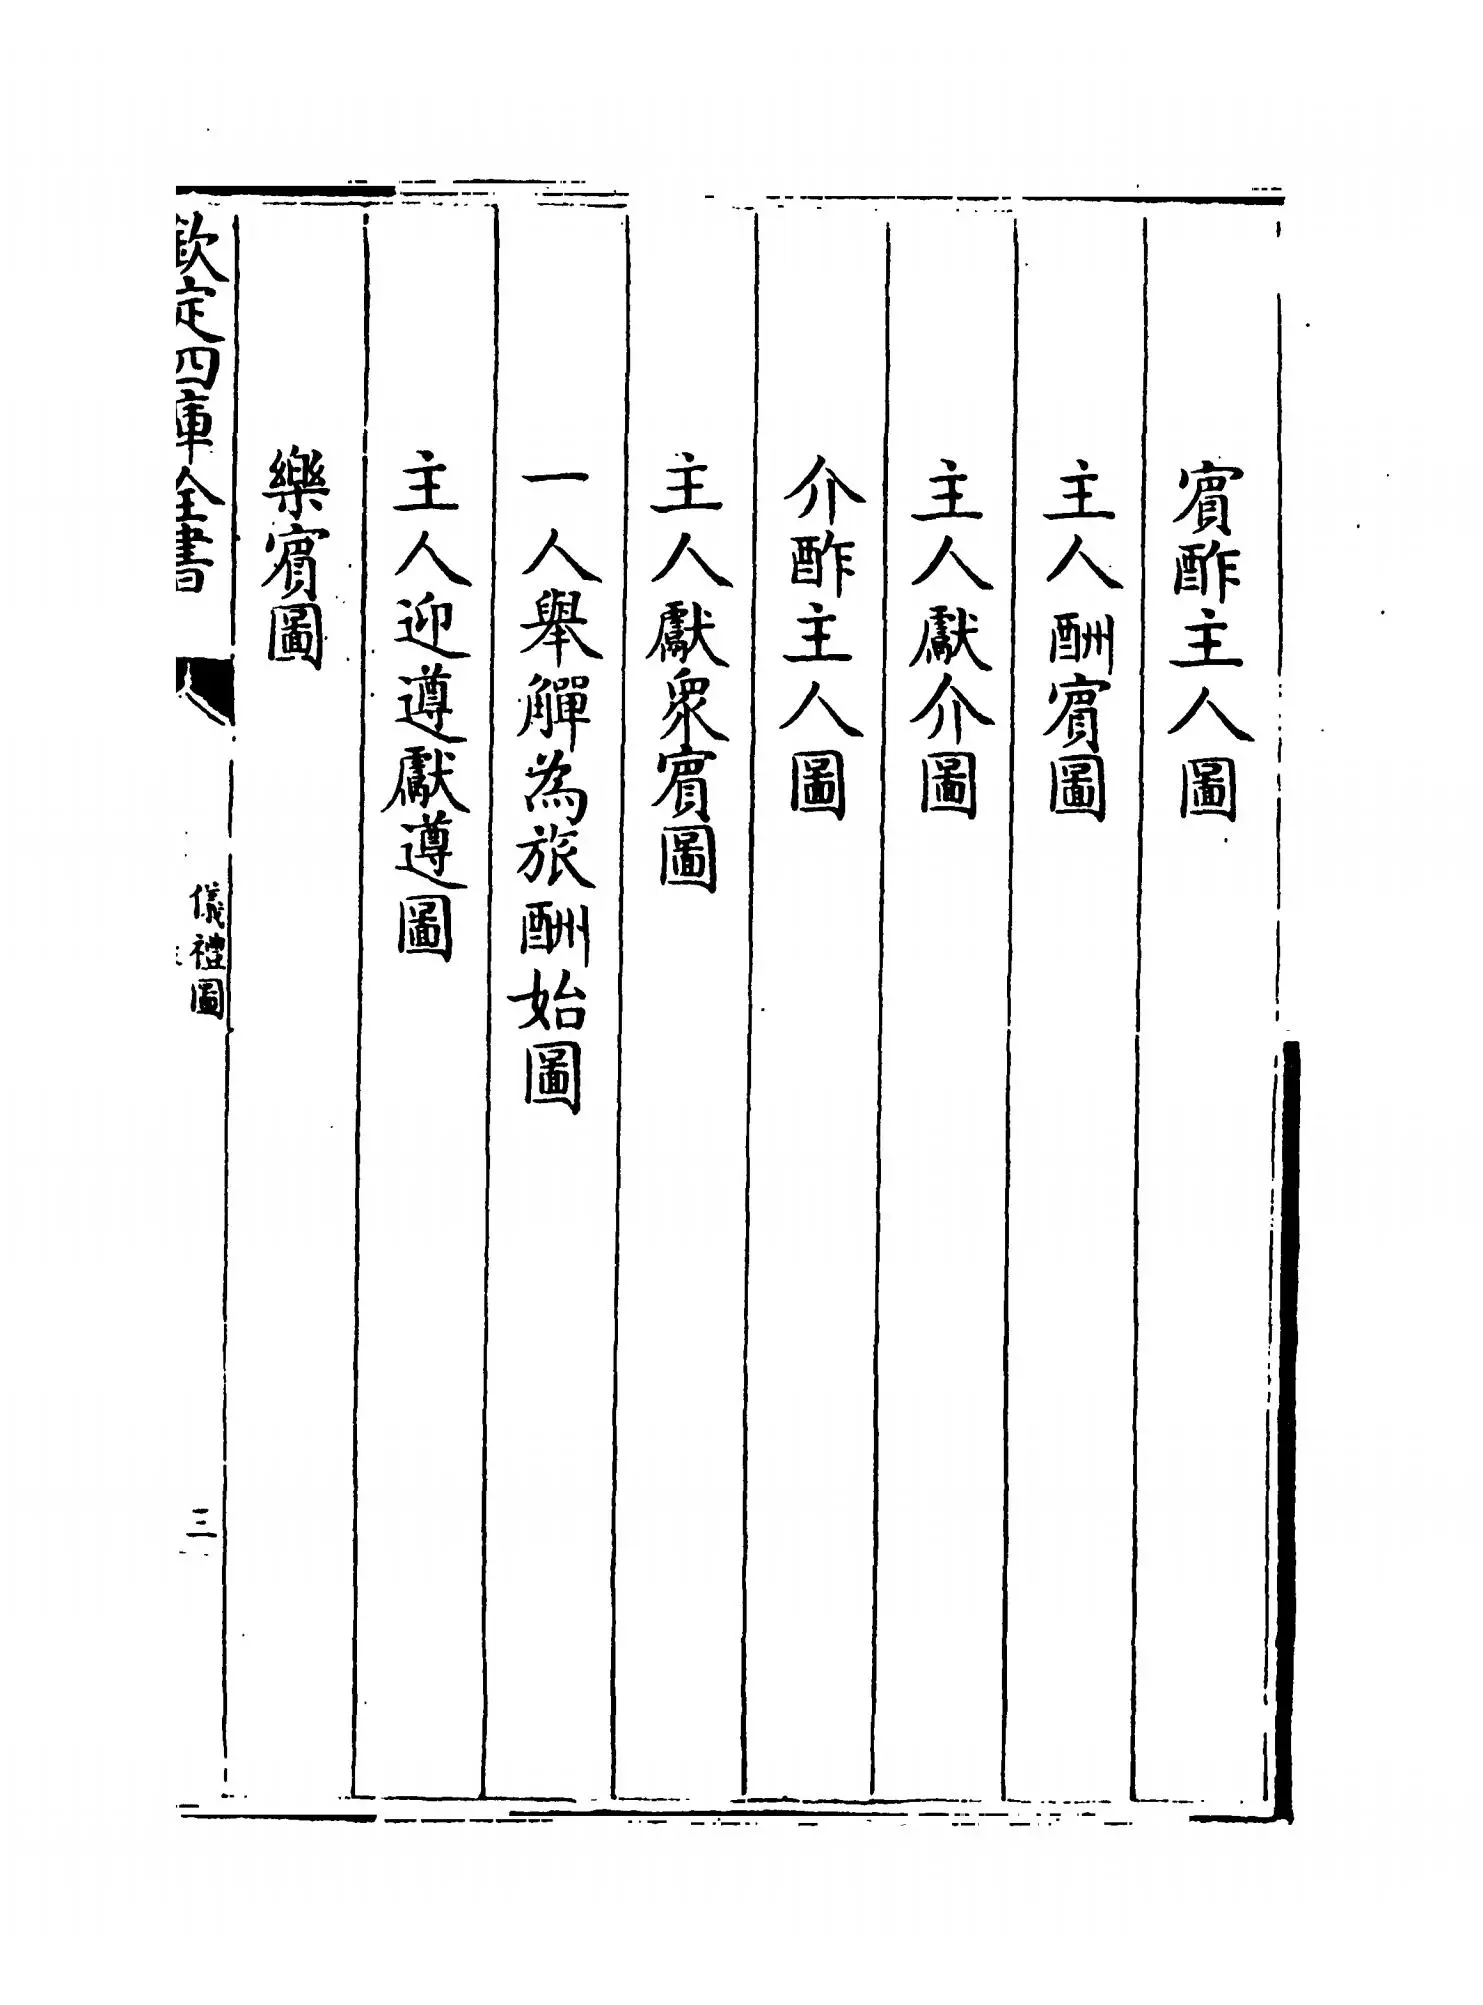 賓酢主人圖
主人酬賓圖
主人獻介圖
介酢主人圖
主人獻衆賓圖
一人舉觶為旅酬始圖
主人迎遵獻遵圖
樂賓圖
欽定四庫全書
儀禮圖
三